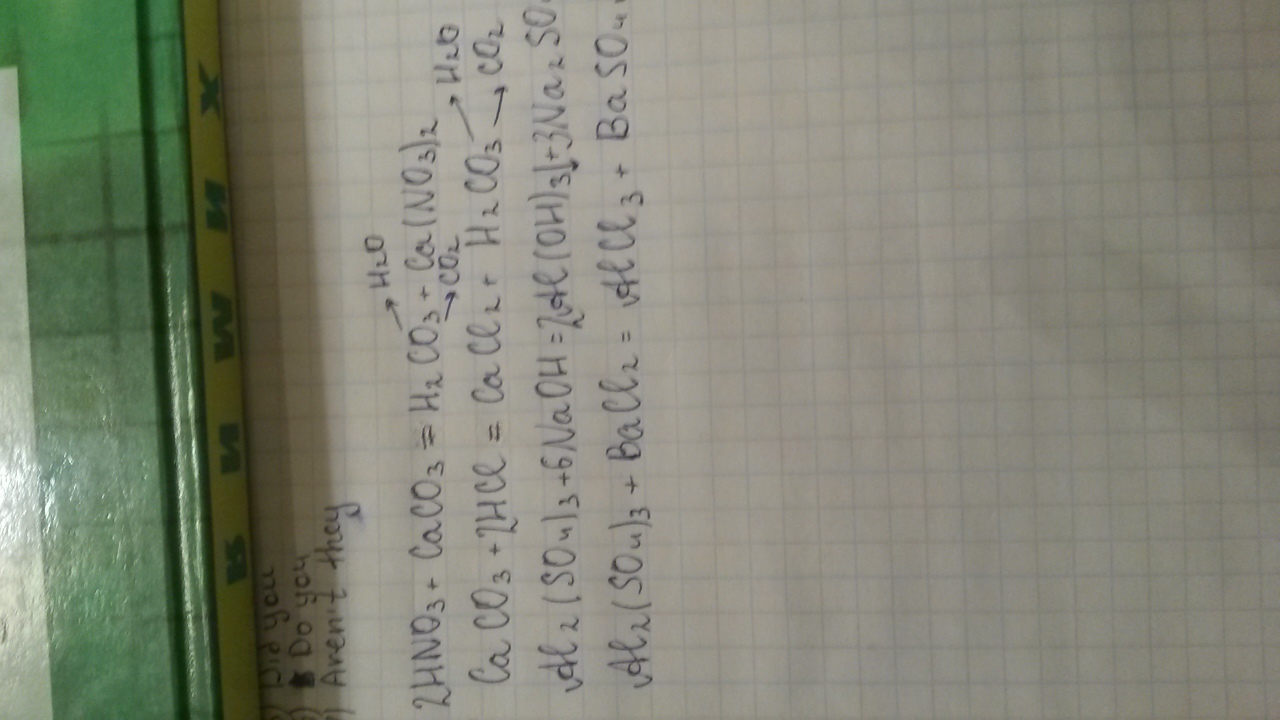 ХИМИЯ
Did you
Do you
Aren't they
→ H₂O
2HNO₃ + CaCO₃ = H₂CO₃ + Ca(NO₃)₂
→ CO₂
→ H₂O
CaCO₃ + 2HCl = CaCl₂ + H₂CO₃ → CO₂
Al₂(SO₄)₃ + 6NaOH = 2Al(OH)₃↓ + 3Na₂SO₄
Al₂(SO₄)₃ + BaCl₂ = AlCl₃ + BaSO₄